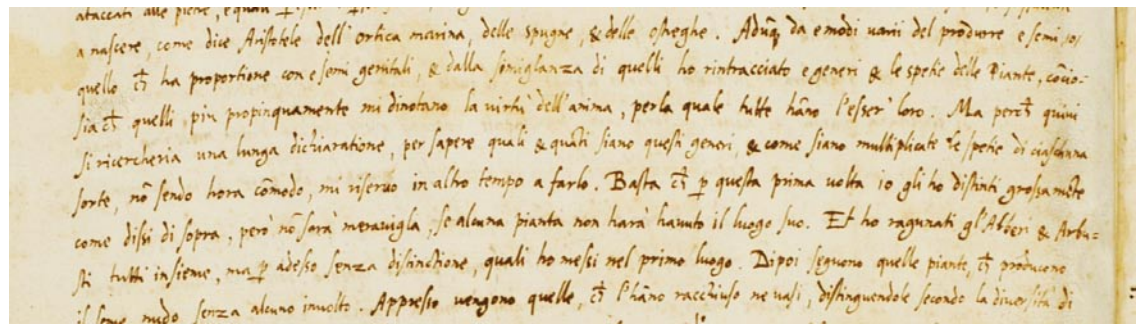 ataccati alle pietre, e quali
a nascere, come dice Aristotele dell'ortica marina, delle spugne, & delle ostreghe. Adunq, da e modi varii del produrre e semi, ò
quello ch̃ ha proportione con e semi genitali, & dalla simiglanza di quelli ho rintracciato e generi & le spetie delle Piante, cõcio-
sia ch̃ quelli piu propinquamente mi dinotano la virtù dell'anima, per la quale tutte hãno l'esser' loro. Ma perch̃ quivi
si ricercheria una lunga dichiaratione, per sapere quali & quãti siano questi generi, & come siano multiplicate le spetie di ciaschuna
sorte, nõ sendo hora cõmodo, mi riservo in altro tempo a farlo. Basta ch̃ p questa prima volta io gli ho distinti grossamẽte
come dissi di sopra, però nõ sarà meravigla, se alcuna pianta non harà havuto il luogo suo. Et ho ragunati gl'Alberi & Arbu-
sti tutti insieme, ma p adesso senza distinctione, quali ho messi nel primo luogo. Dipoi seguono quelle piante, ch̃ producono
il seme nudo senza alcuno involto. Appresso vengono quelle, ch̃ l'hãno racchiuso ne vasi, distinguendole secondo la diversità di